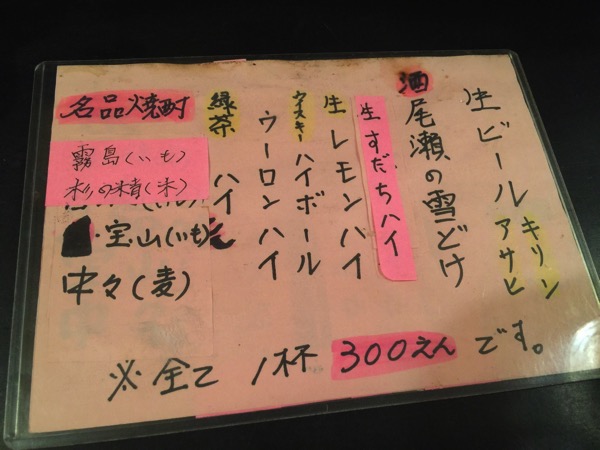 生ビール キリン
アサヒ
酒 尾瀬の雪どけ
生すだちハイ
生レモンハイ
ウイスキーハイボール
ウーロンハイ
緑茶ハイ
名品焼酎
霧島(いも)
杉の精(米)
・宝山(いも)
中々(麦)
※全て1杯300えんです。